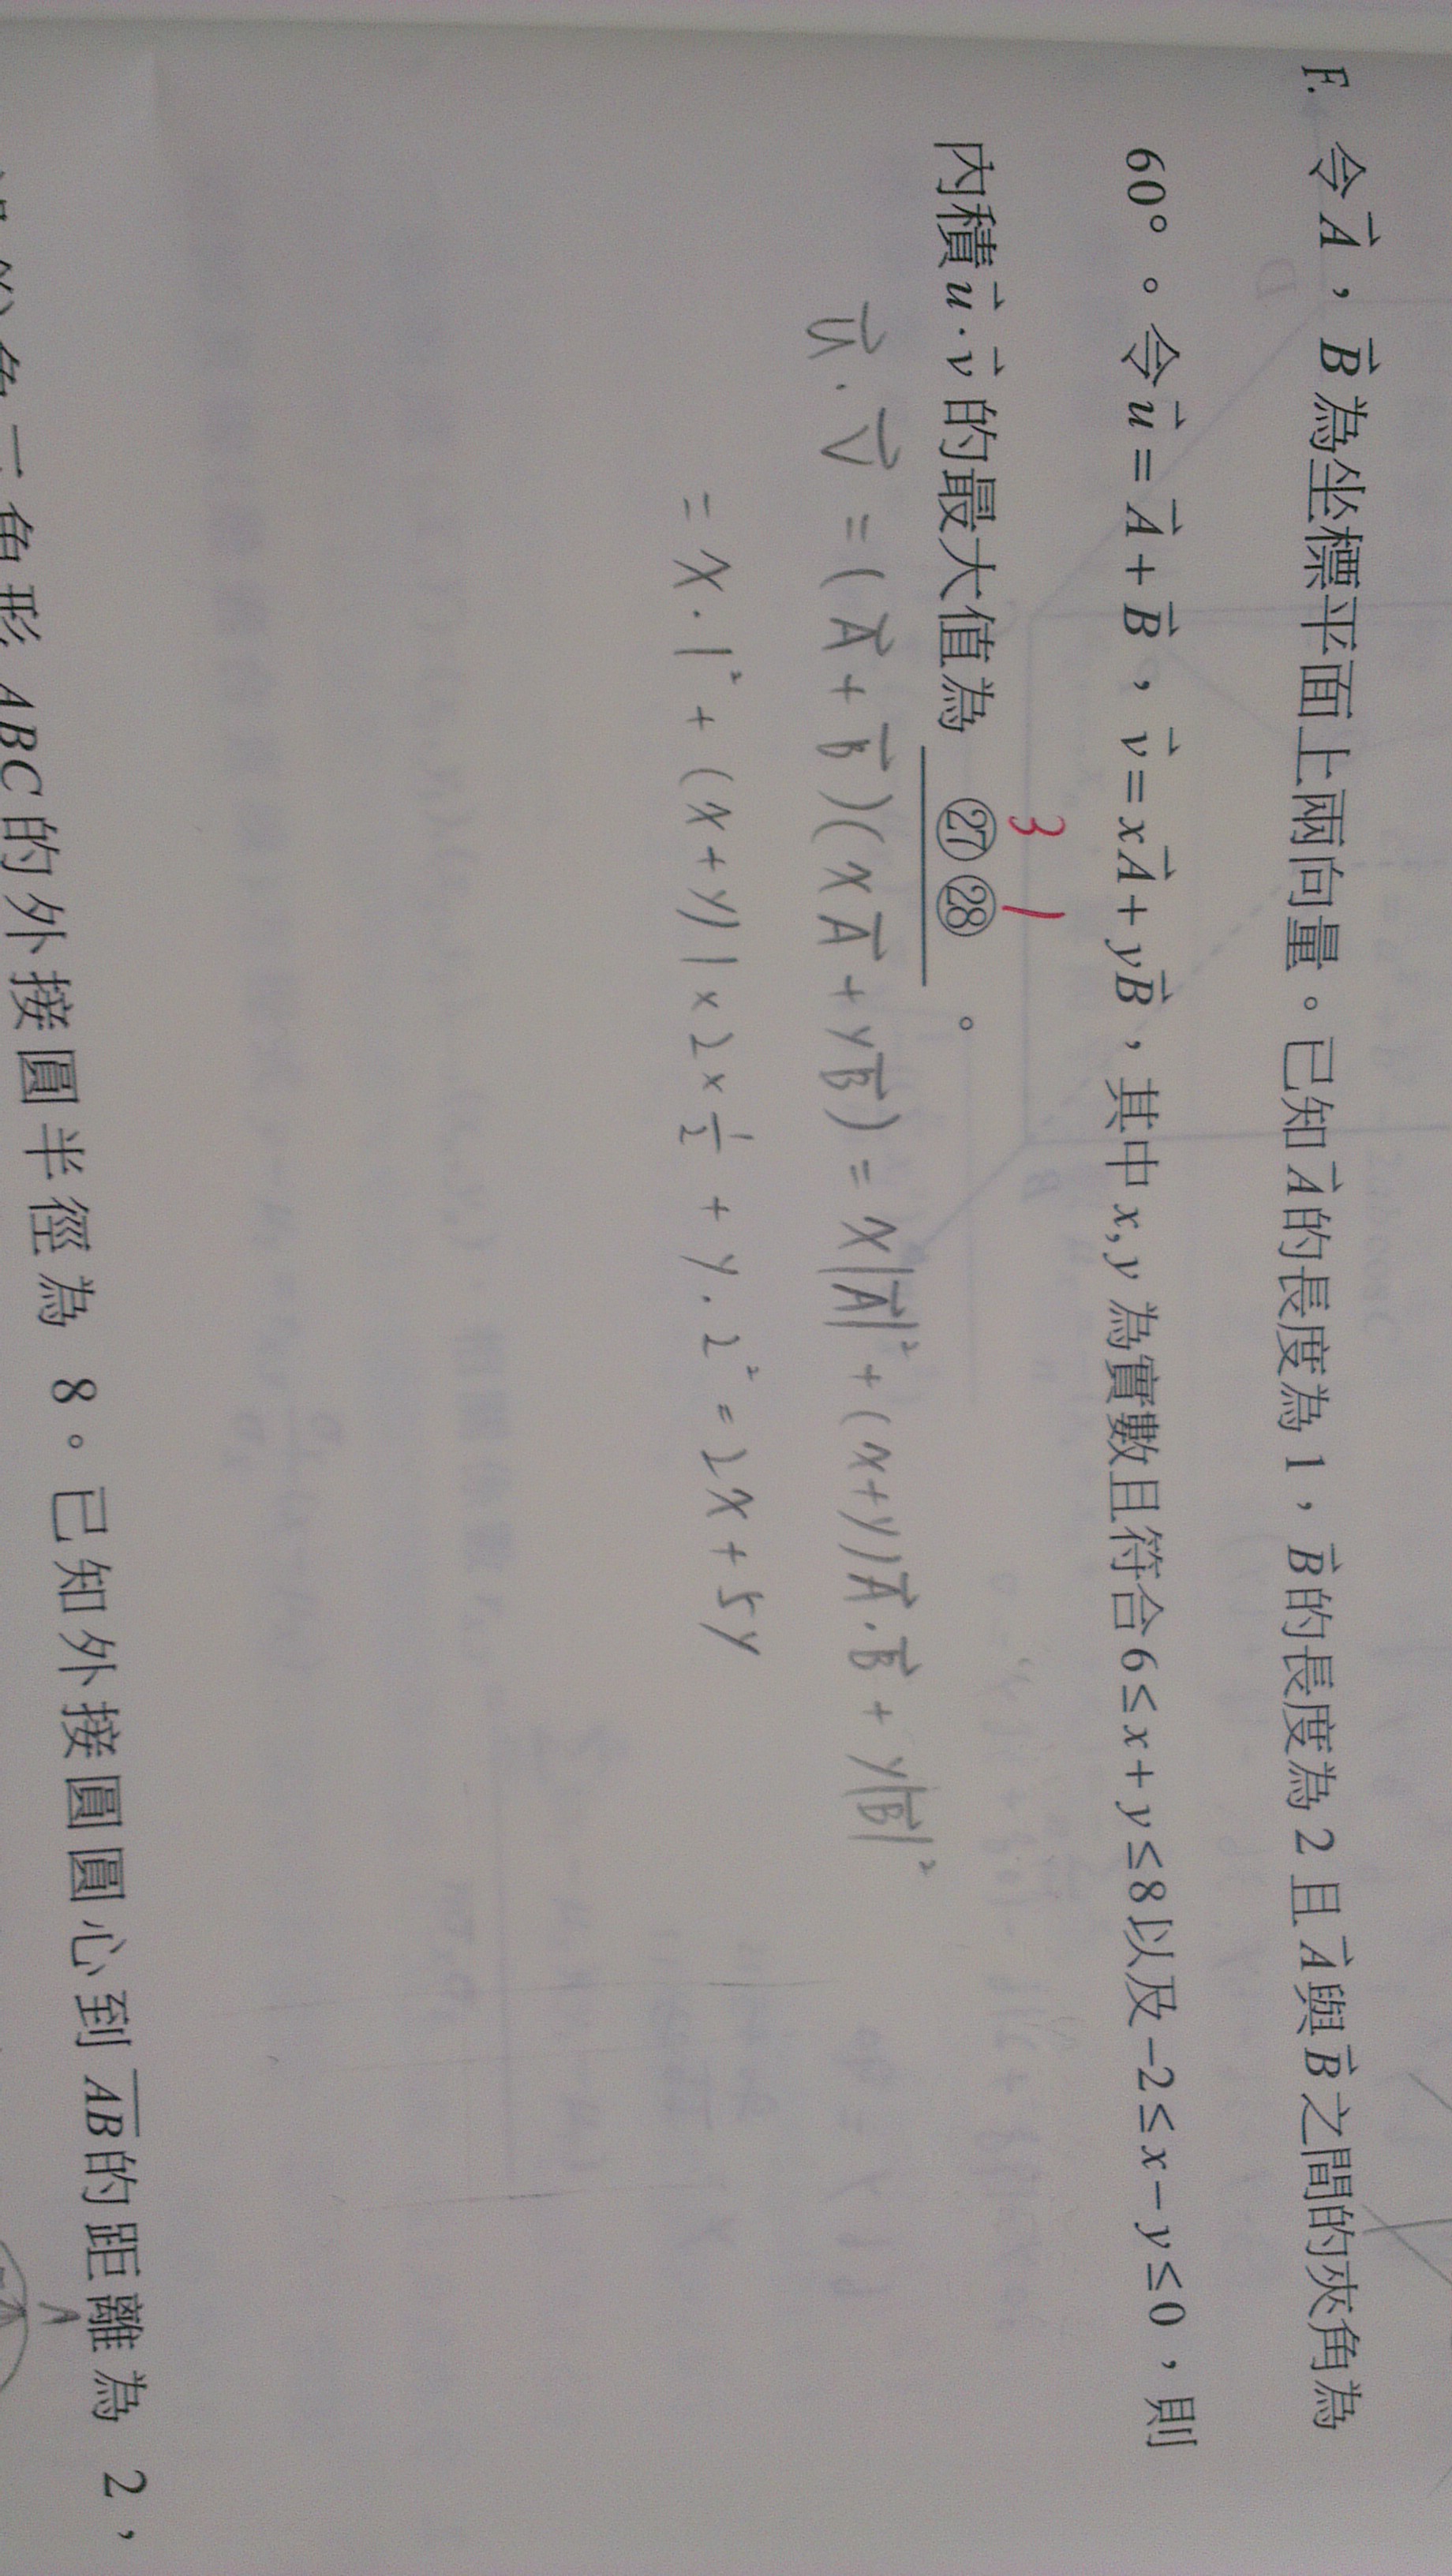 F. 令A⃗，B⃗為坐標平面上兩向量。已知A⃗的長度為1，B⃗的長度為2且A⃗與B⃗之間的夾角為
60°。令u⃗=A⃗+B⃗，v⃗=xA⃗+yB⃗，其中x,y為實數且符合6≤x+y≤8以及-2≤x-y≤0，則
3 1
內積u⃗·v⃗的最大值為 ㉗㉘ 。
u⃗·v⃗=(A⃗+B⃗)(xA⃗+yB⃗)=x|A⃗|²+(x+y)A⃗·B⃗+y|B⃗|²
=x·1²+(x+y)1×2×½+y·2²=2x+5y
角三角形ABC的外接圓半徑為 8。已知外接圓圓心到AB的距離為 2，
A